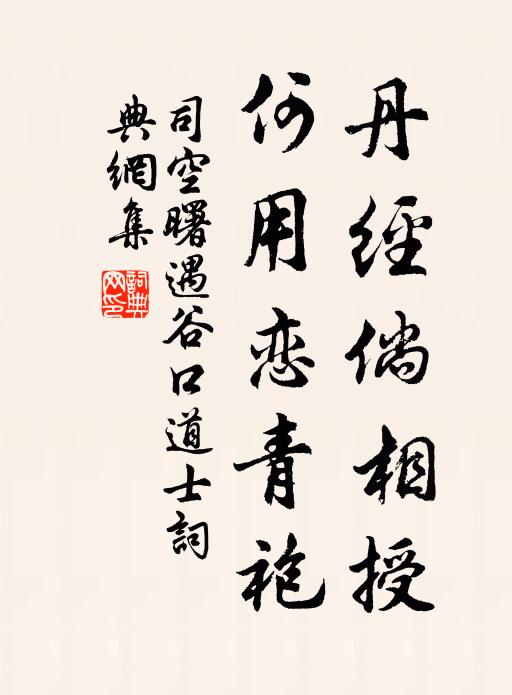 丹經倘相授
何用恋青袍
司空曙遇谷口道士詞
典網集
詞典
网印